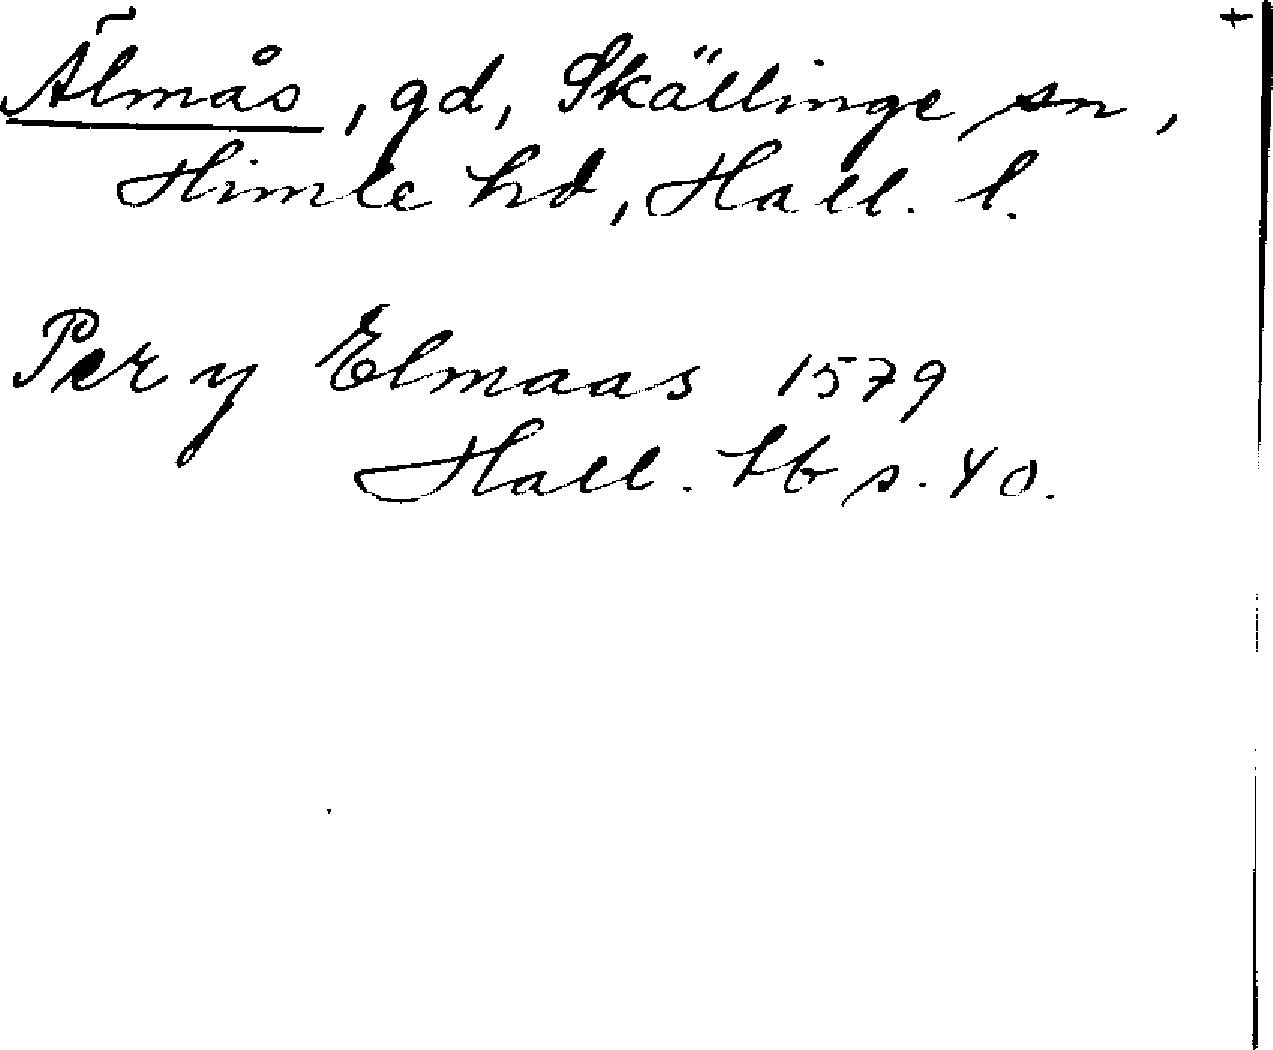 Älmås, gd, Skällinge sn,
Himle hd, Hall. l.
Per y Elmaas 1579
Hall. hb s. 40.